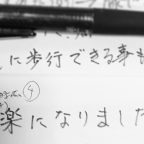 に歩行できる事も
④
楽になりました